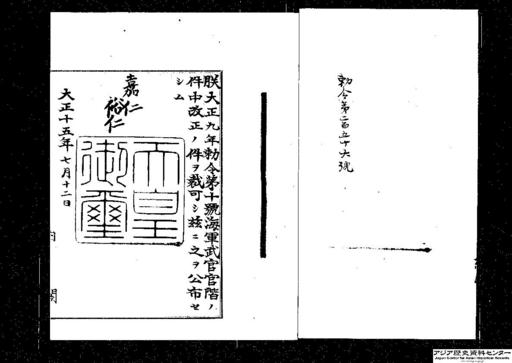 勅令第二百五十六號
朕大正九年勅令第十號海軍武官官階ノ
件中改正ノ件ヲ裁可シ茲ニ之ヲ公布セ
シム
嘉仁
裕仁
天皇御璽
大正十五年七月十二日
内閣
アジア歴史資料センター
Japan Center for Asian Historical Records